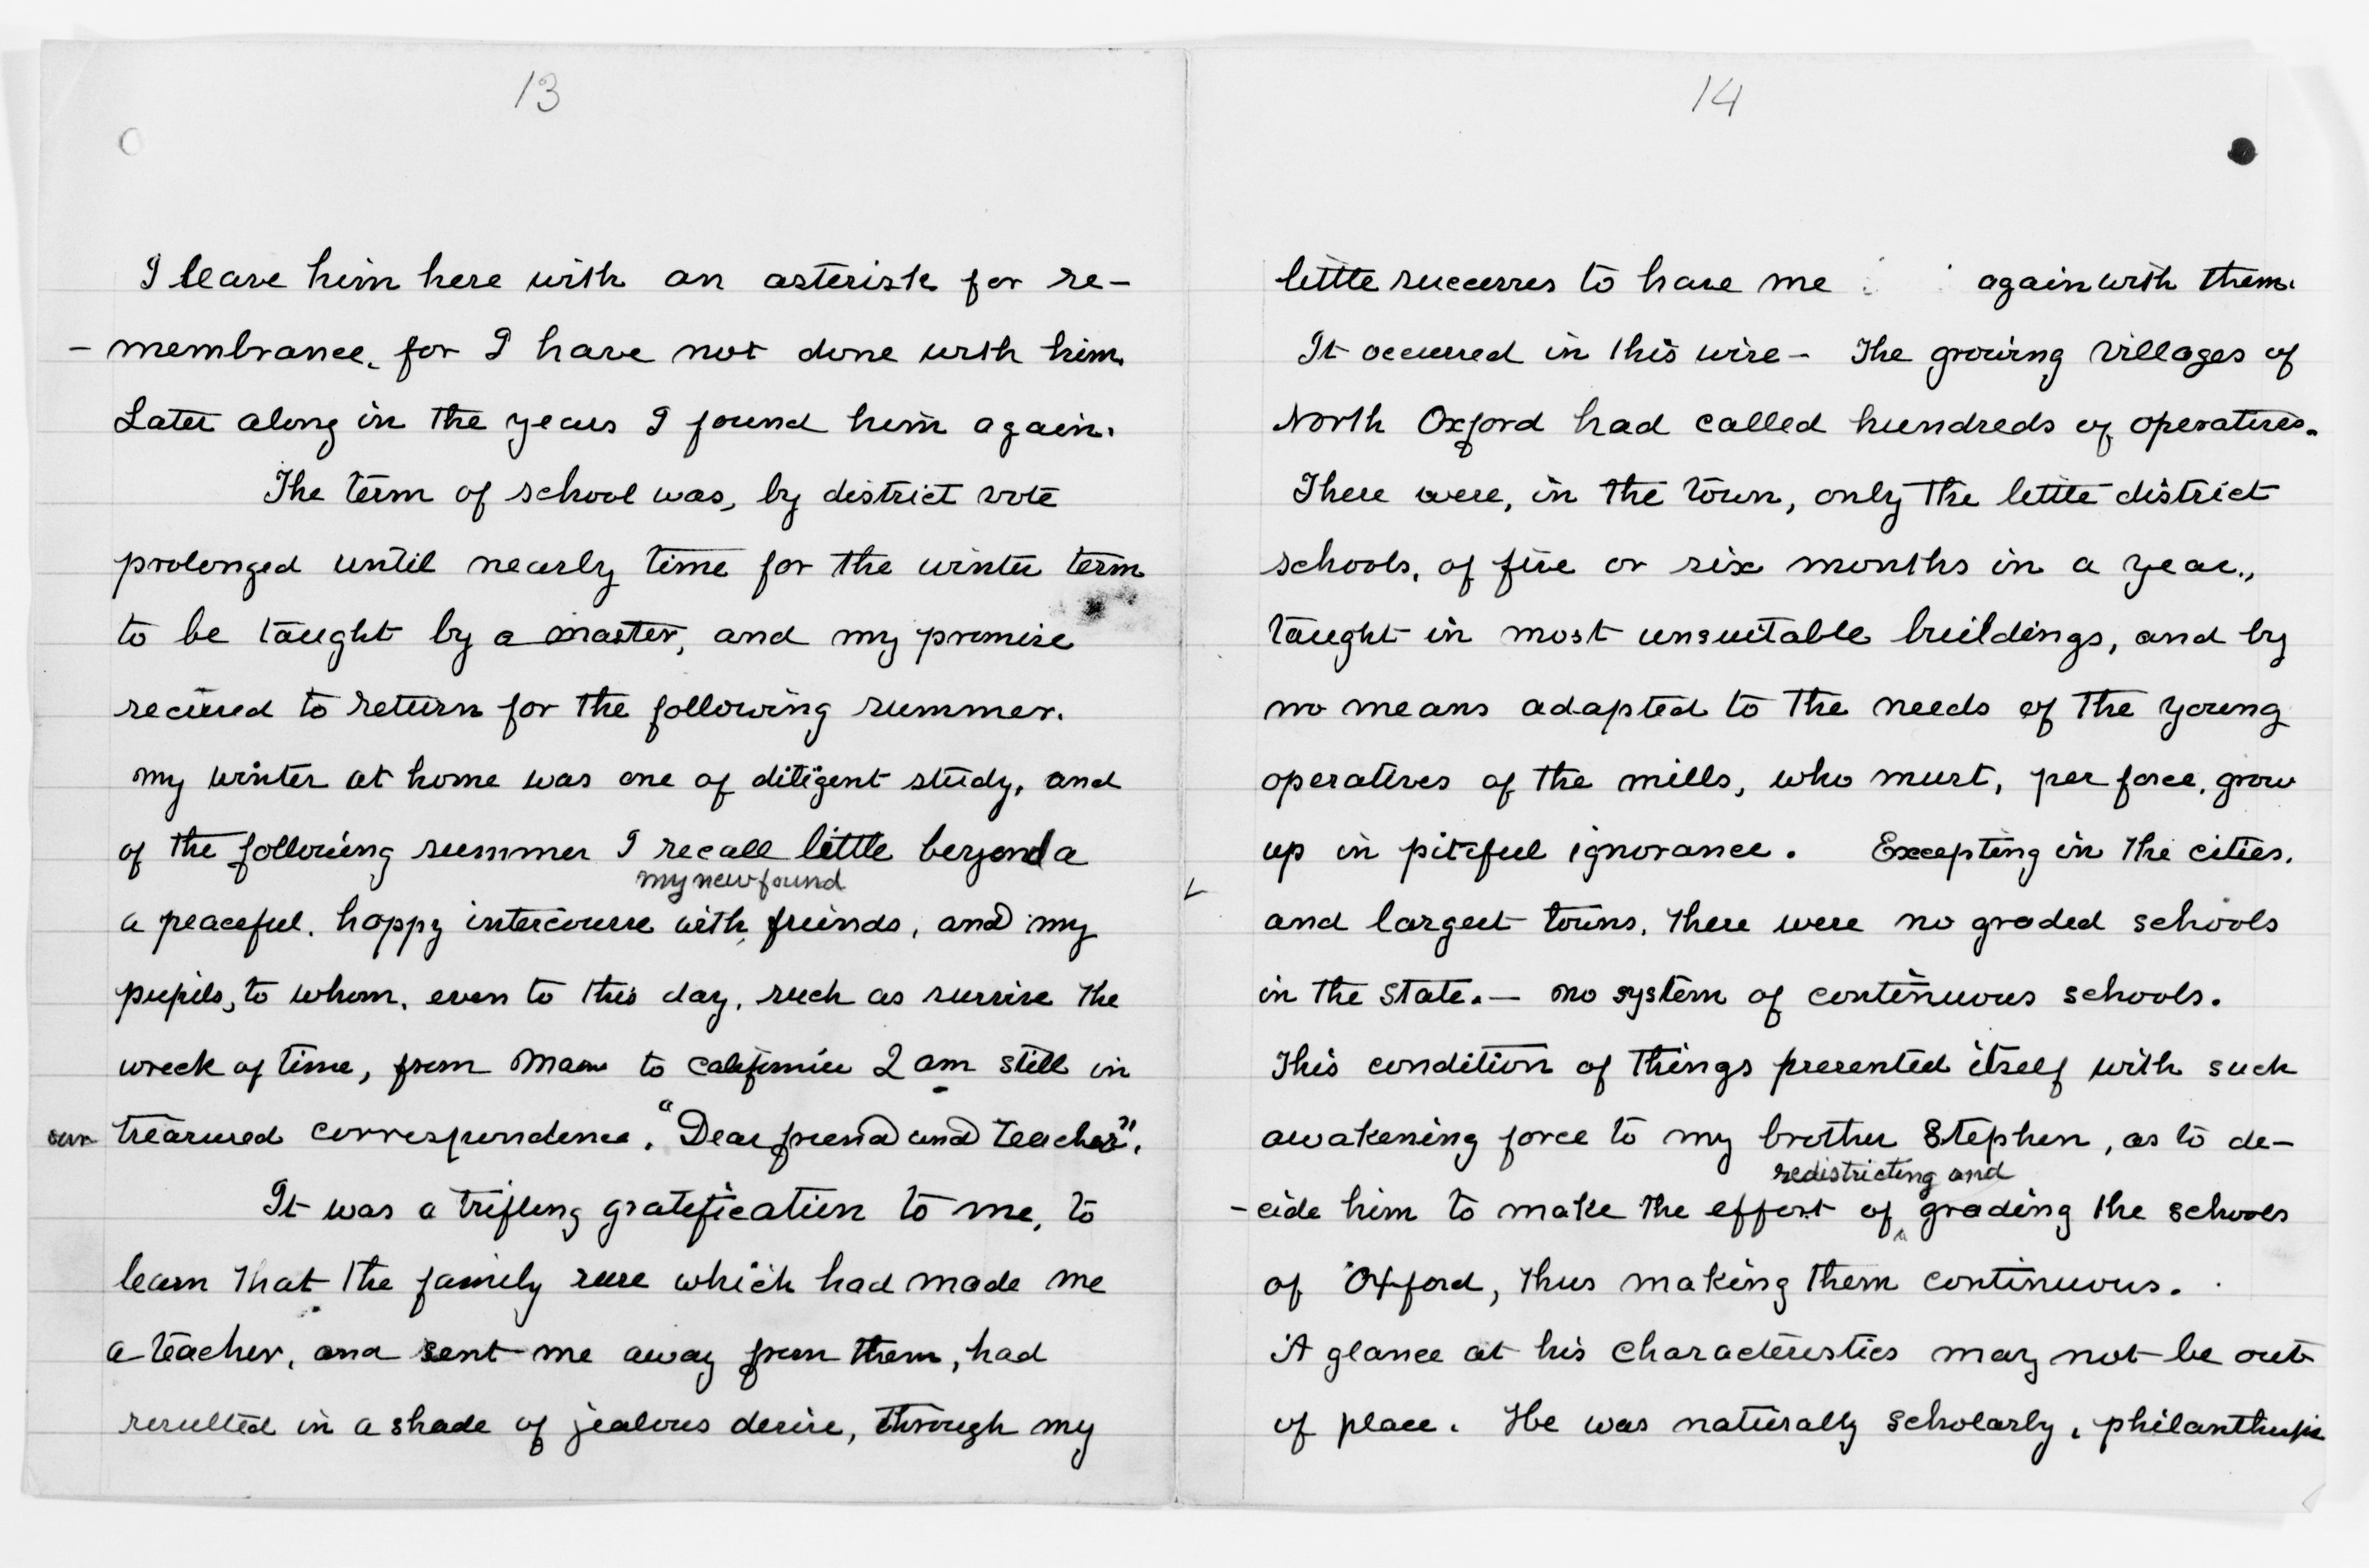 13
I leave him here with an asterisk for re-
- membrance, for I have not done with him.
Later along in the years I found him again.
The term of school was, by district vote
prolonged until nearly time for the winter term
to be taught by a master, and my promise
secured to return for the following summer.
my winter at home was one of diligent study, and
of the following summer I recall little beyond a
my new found
a peaceful, happy intercourse with friends, and my
pupils, to whom, even to this day, such as survive the
wreck of time, from Maine to California I am still in
our treasured correspondence. "Dear friend and teacher".
It was a trifling gratification to me, to
learn that the family ruse which had made me
a teacher, and sent me away from them, had
resulted in a shade of jealous desire, through my
14
little successes to have me again with them.
It occurred in this wise - The growing villages of
North Oxford had called hundreds of operatives.
There were, in the town, only the little district
schools, of five or six months in a year.,
taught in most unsuitable buildings, and by
no means adapted to the needs of the young
operatives of the mills, who must, per force, grow
up in pitiful ignorance. Excepting in the cities,
and largest towns, there were no graded schools
in the State. — no system of continuous schools.
This condition of things presented itself with such
awakening force to my brother Stephen, as to de-
redistricting and
- cide him to make the effort of grading the schools
of Oxford, thus making them continuous.
A glance at his characteristics may not be out
of place. He was naturally scholarly, philanthropic